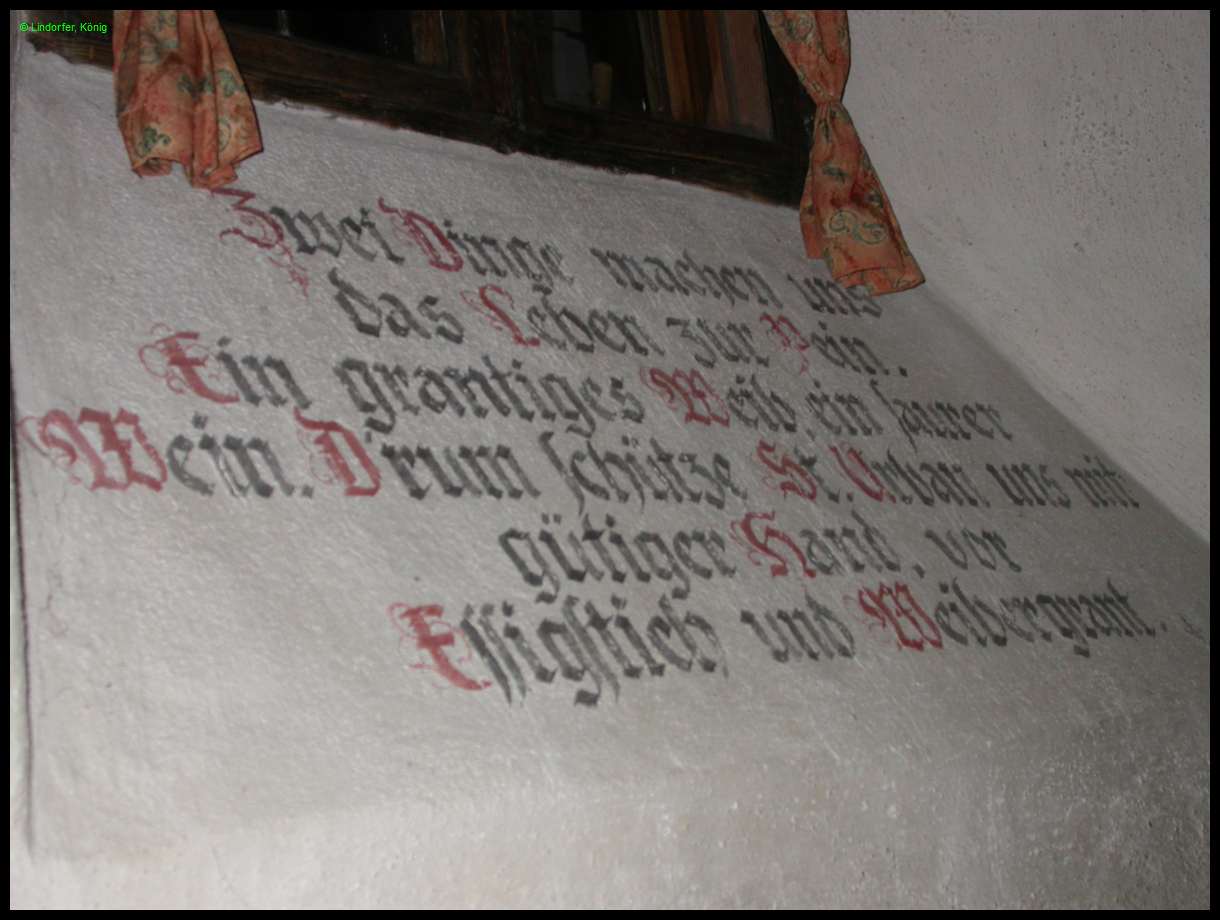 © Lindorfer, König
Zwei Dinge machen uns
das Leben zur Pein.
Ein grantiges Weib, ein saurer
Wein. D'rum schütze St. Urban uns mit
gütiger Hand, vor
Essigstich und Weibergrant.